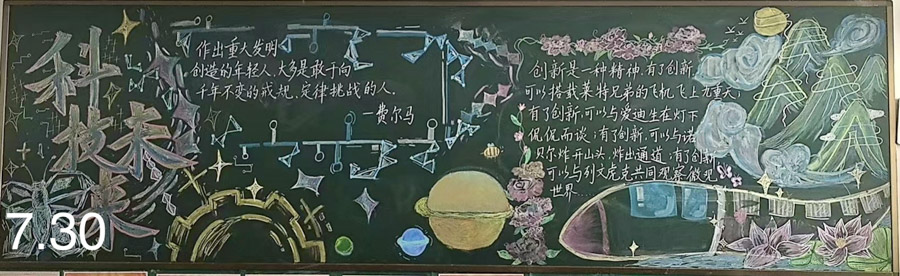 科技未来
作出重大发明
创造的年轻人,大多是敢于向
千年不变的戒规、定律挑战的人。
—费尔马
创新是一种精神,有了创新
可以搭载莱特兄弟的飞机飞上九重天;
有了创新,可以与爱迪生在灯下
侃侃而谈;有了创新,可以与诺
贝尔炸开山头,炸出通道;有了创新
可以与列文虎克共同观察微观
世界.
7.30